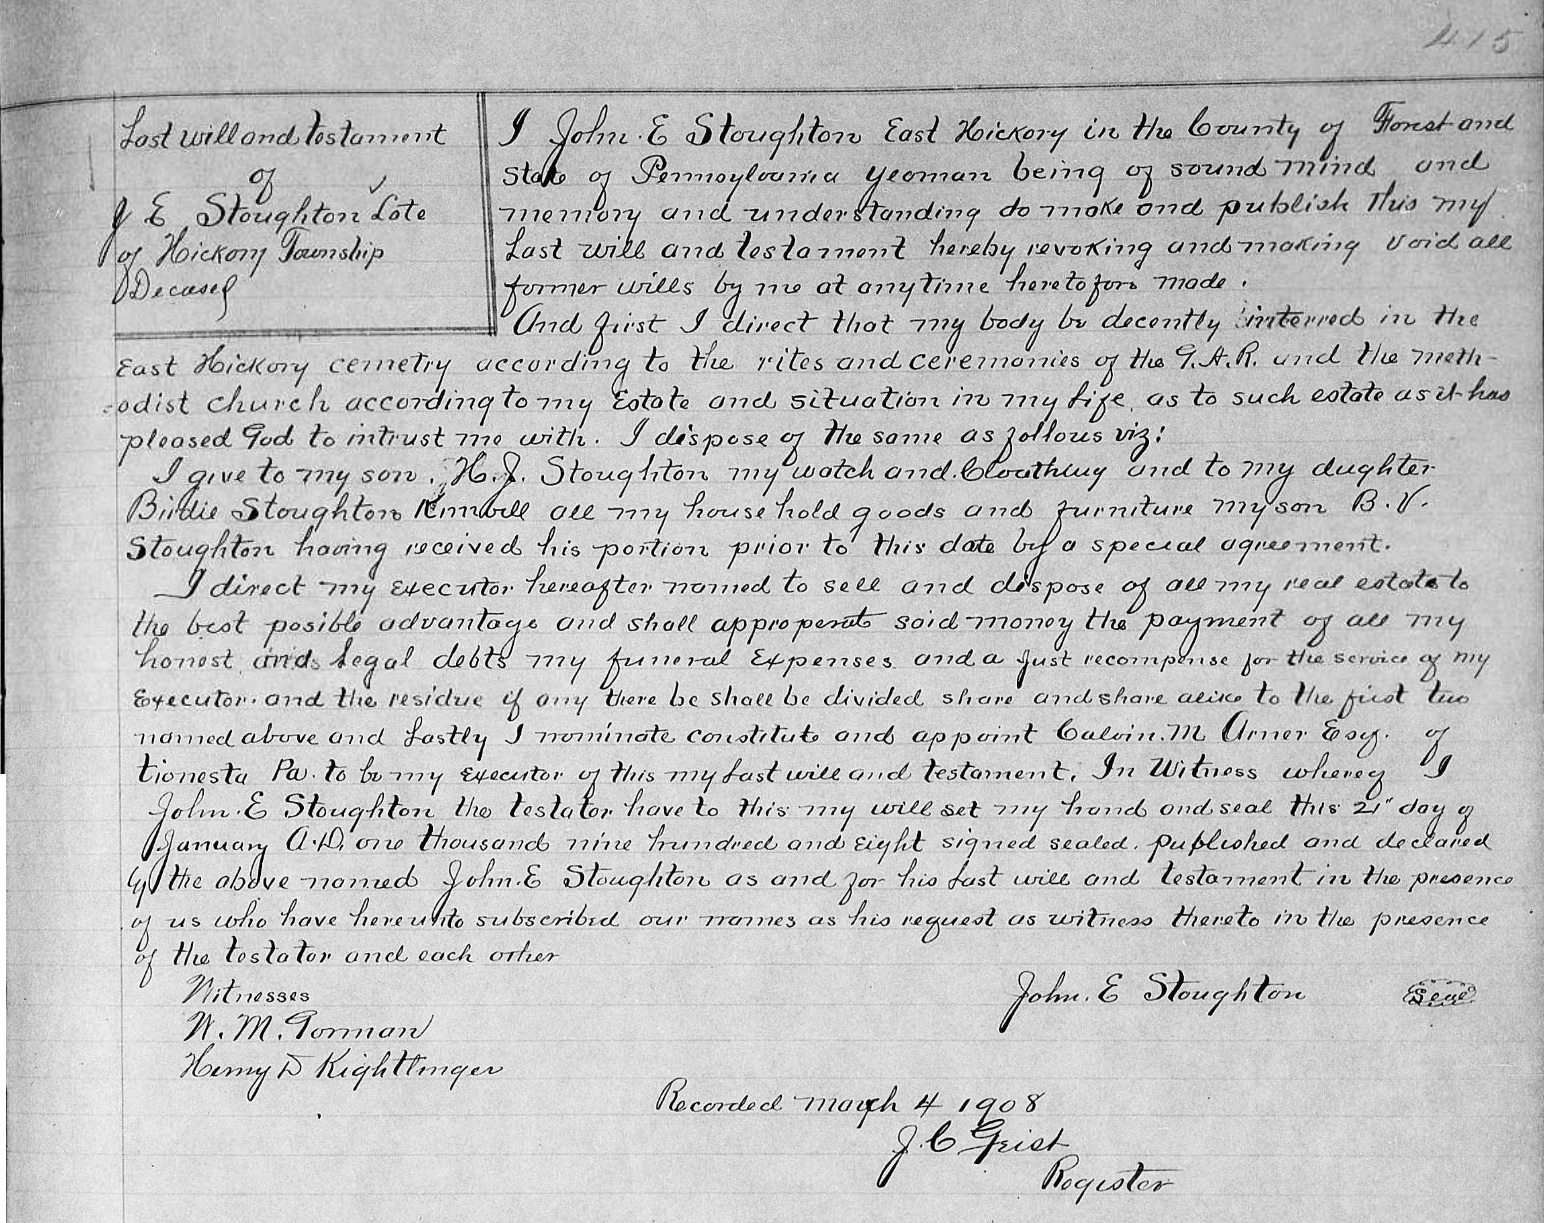 415
Last will and testament
of
J E Stoughton Late
of Hickory Township
Deceased
I John. E Stoughton East Hickory in the County of Forest and
State of Pennsylvania yeoman being of sound mind and
memory and understanding do make and publish this my
Last will and testament hereby revoking and making void all
former wills by me at anytime heretofore made.
And first I direct that my body be decently interred in the
East Hickory cemetry according to the rites and ceremonies of the G.A.R. and the meth-
-odist church according to my Estate and situation in my life, as to such estate as it has
pleased God to intrust me with. I dispose of the same as follows viz:
I give to my son, H. J. Stoughton my watch and Cloathing and to my dughter
Birdie Stoughton Kimball all my household goods and furniture my son B. V.
Stoughton having received his portion prior to this date by a special agreement.
I direct my Executor hereafter named to sell and dispose of all my real estate to
the best posible advantage and shall approperate said money the payment of all my
honest and legal debts my funeral Expenses and a just recompense for the service of my
Executor. and the residue if any there be shall be divided share and share alike to the first two
named above and Lastly I nominate constitute and appoint Calvin. M Arner Esq. of
tionesta Pa. to be my Executor of this my last will and testament. In Witness whereof I
John. E Stoughton the testator have to this my will set my hand and seal this 21" day of
January A.D. one thousand nine hundred and Eight signed sealed. published and declared
by the above named John. E Stoughton as and for his last will and testament in the presence
of us who have hereunto subscribed our names as his request as witness thereto in the presence
of the testator and each other
Witnesses
John. E Stoughton Seal
W. M. Gorman
Henry D Kightlinger
Recorded March 4 1908
J. C Geist
Register